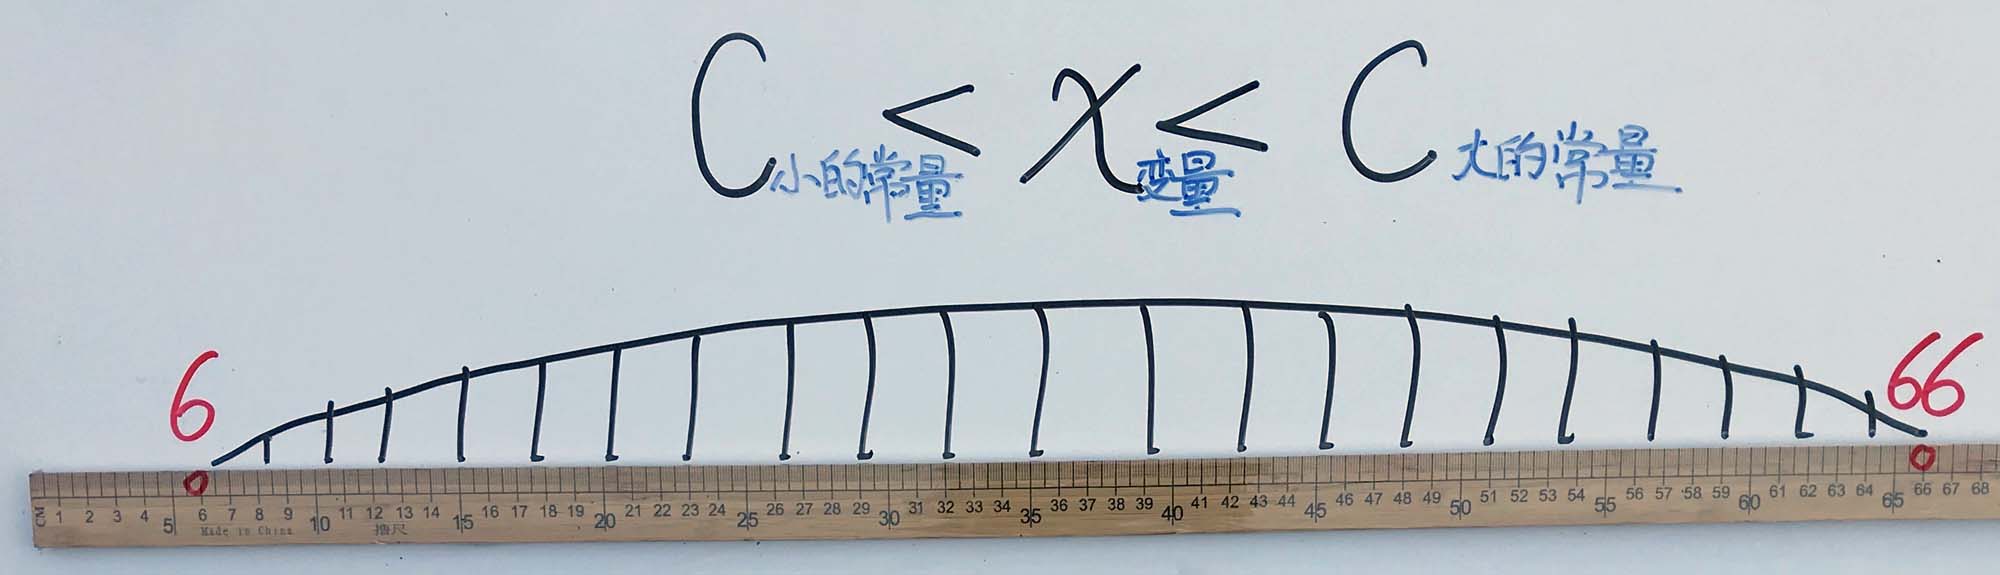 C小的常量 < x变量 < C大的常量
6 66
CM 1 2 3 4 5 6 7 8 9 10 11 12 13 14 15 16 17 18 19 20 21 22 23 24 25 26 27 28 29 30 31 32 33 34 35 36 37 38 39 40 41 42 43 44 45 46 47 48 49 50 51 52 53 54 55 56 57 58 59 60 61 62 63 64 65 66 67 68
Made in China 撸尺